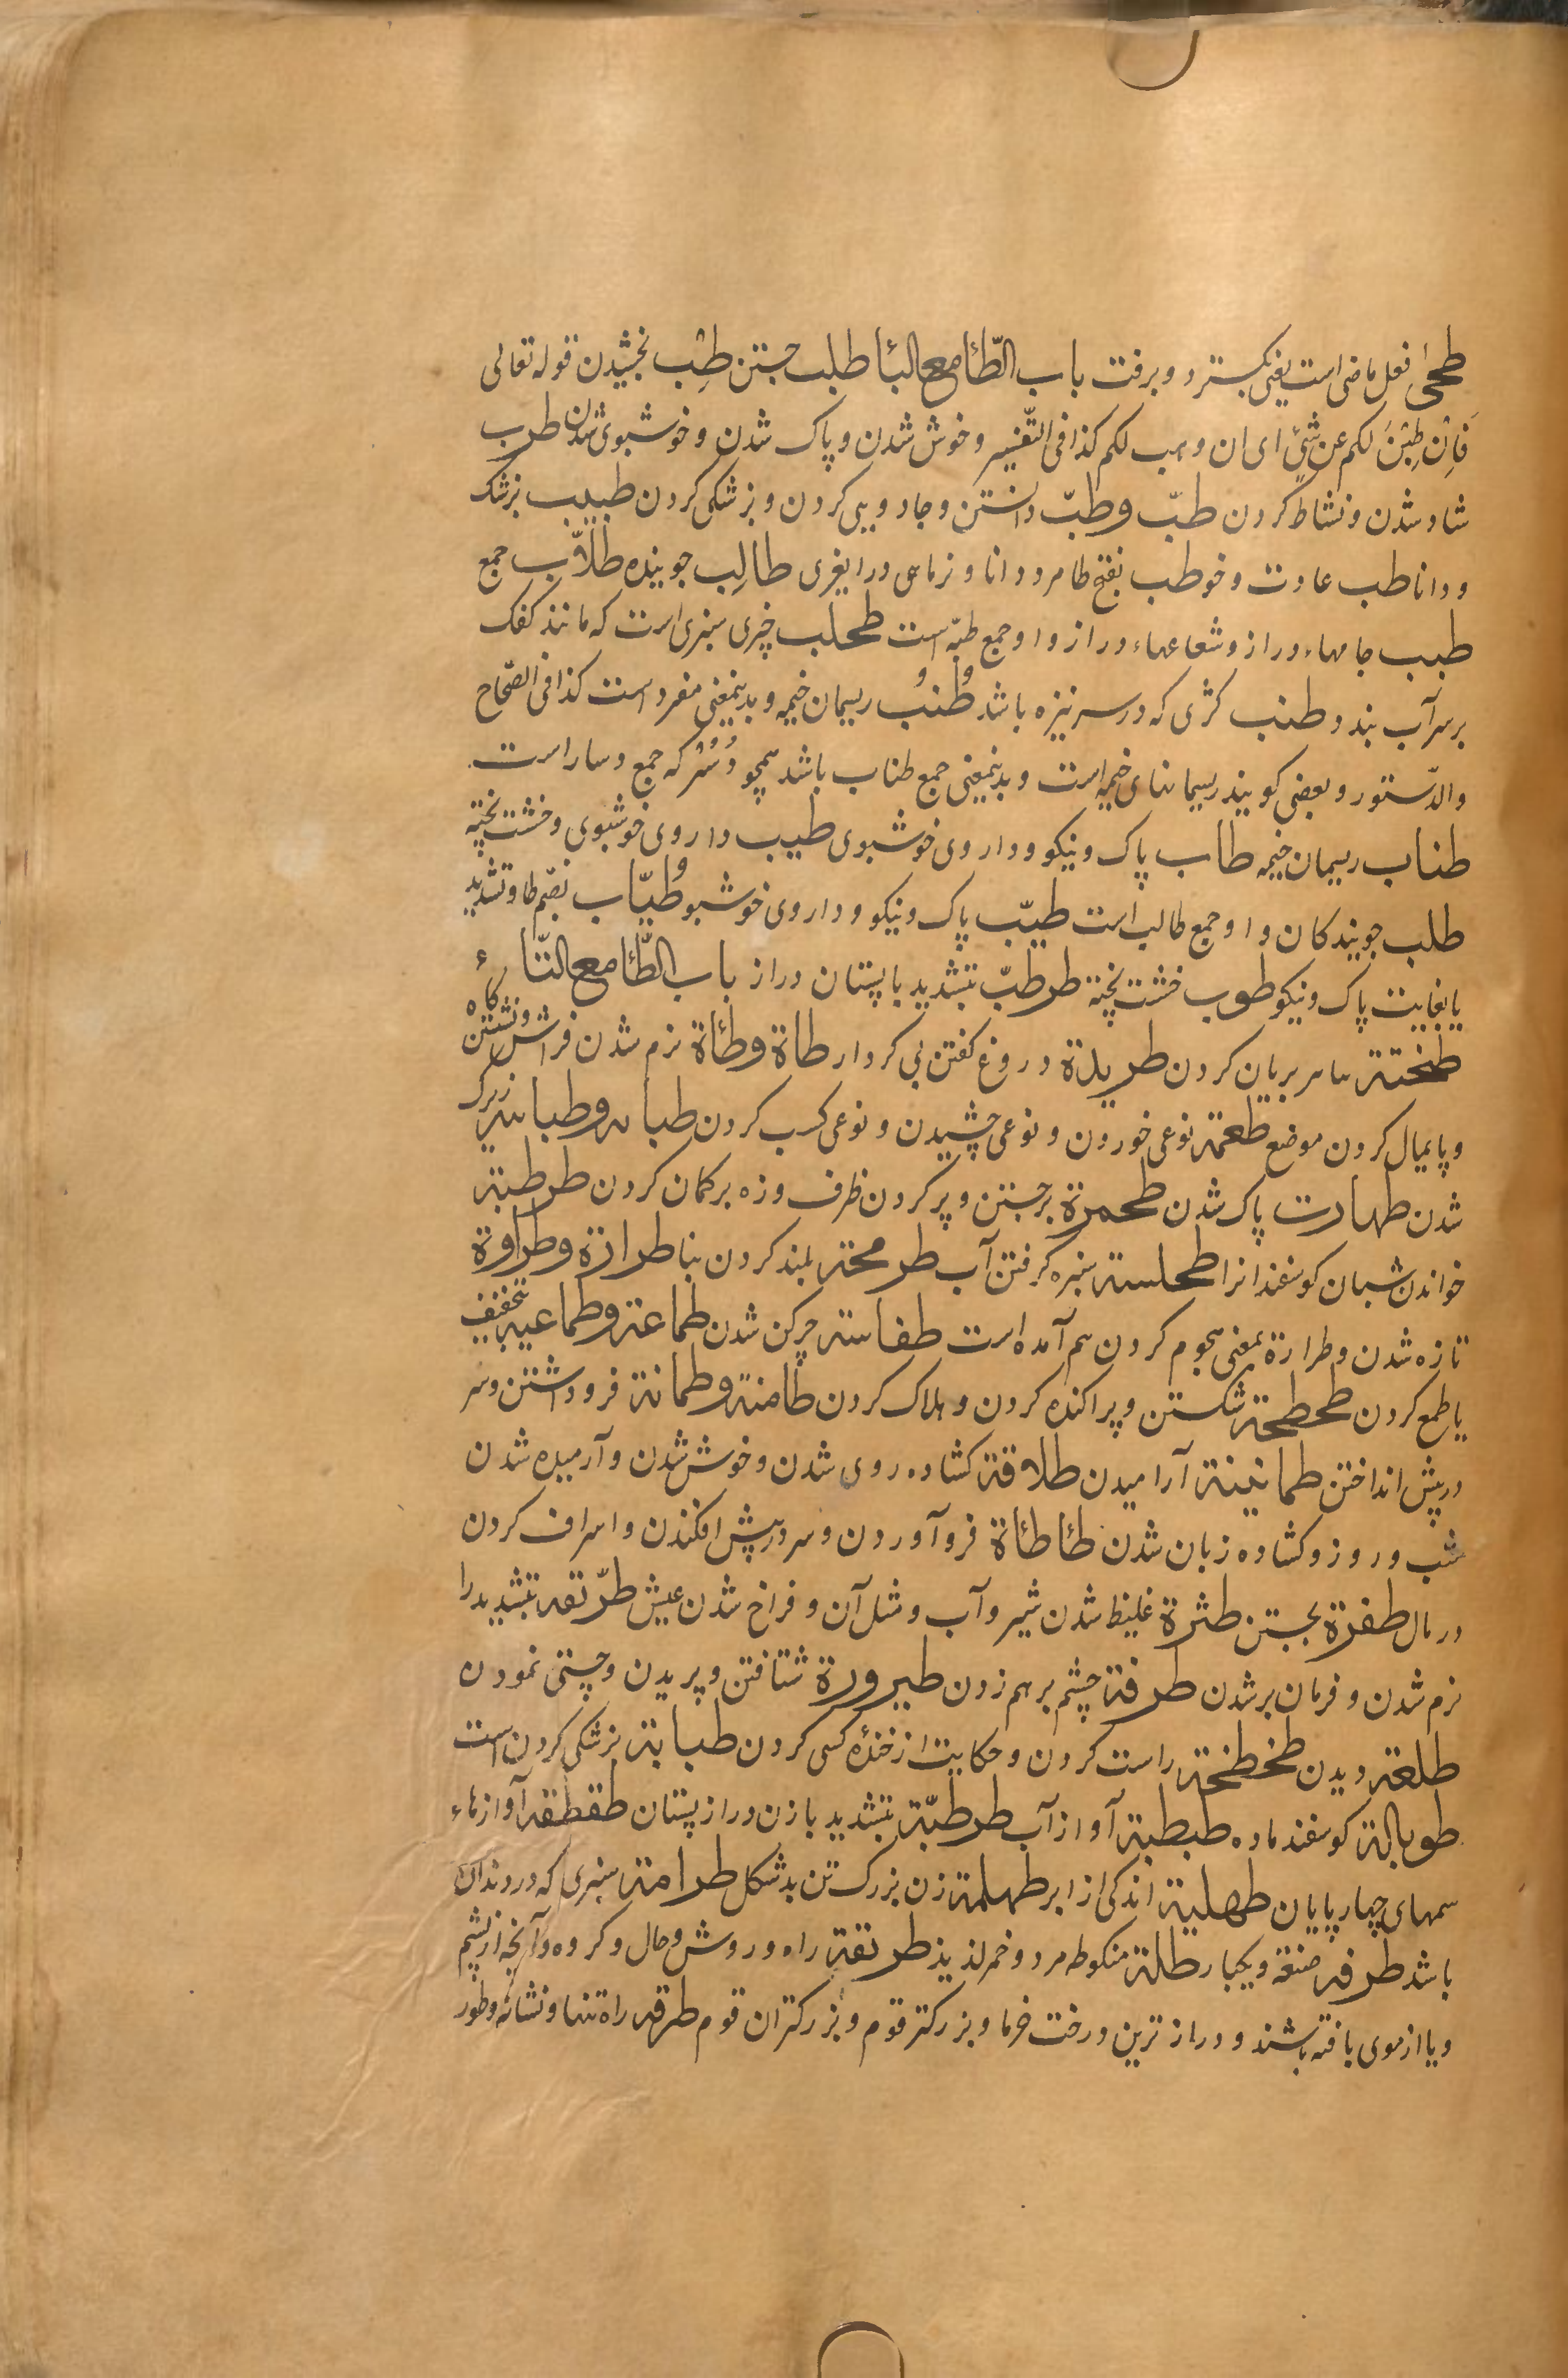 طحیٰ فعل ماضی است یعنی بکسترد و برفت باب الطّا مع البا طلب جستن طِیب بخشیدن قوله تعالی
فَاِنْ طِبْنَ لکم عن شیٍٔ ای ان وهب لکم کذا فی التّفسیر و خوش شدن و پاک شدن و خوشبوی شدن طرب
شاد شدن و نشاط کردن طبّ و طبّ دانستن و جادویی کردن و بزشکی کردن طبیب بزشک
و دانا طب عادت و خو طب بفتح طا مرد دانا و نرماهی طالِب جوینده طلّاب جمع
طبب جامهاء دراز و شعاعهاء دراز و او جمع طبّه است طحلب چیزی سبزی است که مانند کفک
بر سر آب بندد طنب کژی که در سر نیزه باشد طُنُب ریسمان خیمه و بدینمعنی مفرد است کذا فی الصّحاح
والدّستور و بعضی کویند ریسمانهای خیمه است و بدینمعنی جمع طناب باشد همچو دُسُر که جمع دسار است
طناب ریسمان خیمه طاب پاک و نیکو و داروی خوشبوی طیب داروی خوشبوی و خشت پخته
طلب جویندکان و او جمع طالب است طیّب پاک و نیکو و داروی خوشبو طُیّاب بضم طا و تشدید
یا بغایت پاک و نیکو طوب خشت پخته طرطبّ بتشدید با پستان دراز باب الطّا مع التّاء
بریان کردن دروغ گفتن بی کردار طاة و طاٴة نرم شدن فراش و نشستن کاه
و پایمال کردن موضع طعمة نوعی خوردن و نوعی چشیدن و نوعی کسب کردن زیرک
شدن طهارت پاک شدن طحمرة برجستن و پر کردن ظرف و زه بر کمان کردن طرطبة
خواندن شبان کوسفندانرا طحلبة سبزه کرفتن آب طرمحة بلند کردن بنا طرازة و طراوة
تازه شدن و طرارة بمعنی هجوم کردن هم آمده است طفاسة چرکن شدن طماعة و طماعیة بتخفیف
یا طمع کردن طحطحة شکستن و پراکنده کردن و هلاک کردن طامنة و طمانة فرو داشتن و سر
در پیش انداختن طمانینة آرامیدن طلاقة کشاده روی شدن و خوش شدن و آرمیده شدن
شب و روز و کشاده زبان شدن طاطاة فرو آوردن و سر در پیش افکندن و اسراف کردن
در مال طفرة بجستن طثرة غلیظ شدن شیر و آب و مثل آن و فراخ شدن عیش طرّیقه بتشدید را
نرم شدن و فرمان بر شدن طرفة چشم بر هم زدن طیرورة شتافتن و پریدن و چستی نمودن
طلعة دیدن طخطخة راست کردن و حکایت از خندهٔ کسی کردن طبابة بزشکی کردن است
طوبالة کوسفند ماده طبطبة آواز آب طرطبّة بتشدید با زن دراز پستان طقطقه آوازهاء
سمهای چهارپایان طهلیة اندکی از ابر طهلمة زن بزرک تن بد شکل طرامة سبزی که در دندان
باشد طرفه ویکبار طلة منکوطه مرد و خمر لذیذ طریقة راه و روش و حال و کروه و آنچه از پشم
و یا از موی بافته باشند و درازترین درخت خرما و بزرکتر قوم و بزرکتران قوم طرقه راه تنها و نشانه و طور